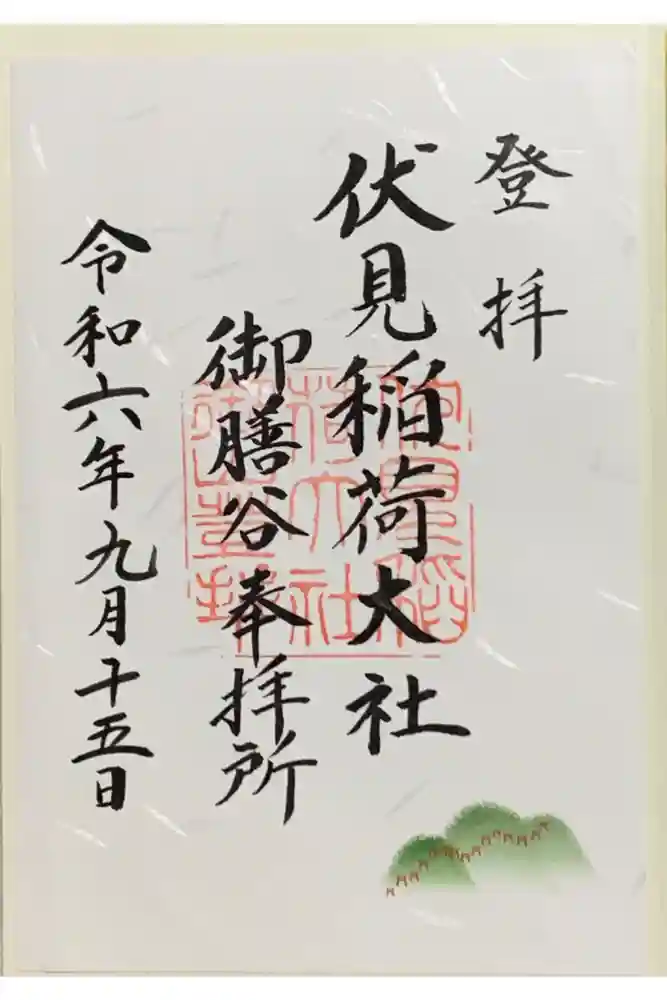 登拝
伏見稲荷大社
御膳谷奉拝所
令和六年九月十五日